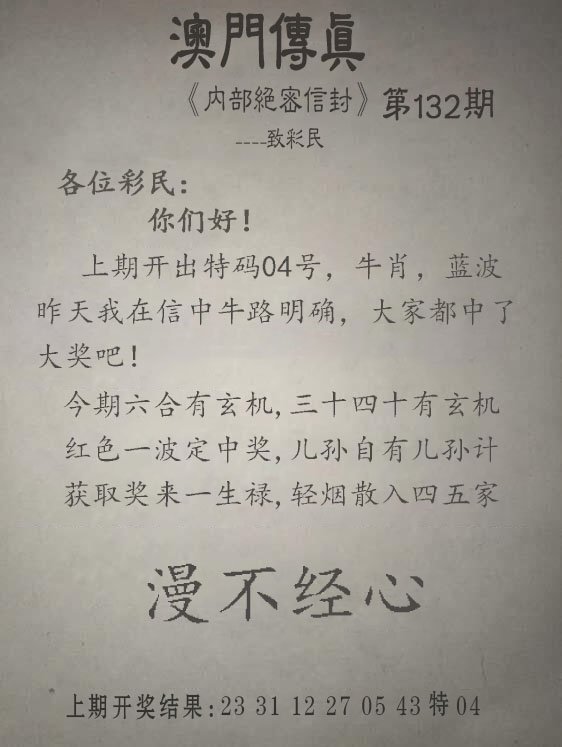 澳門傳真
《内部絕密信封》第132期
----致彩民
各位彩民：
你们好！
上期开出特码04号，牛肖，蓝波
昨天我在信中牛路明确，大家都中了
大奖吧！
今期六合有玄机,三十四十有玄机
红色一波定中奖,儿孙自有儿孙计
获取奖来一生禄,轻烟散入四五家
漫不经心
上期开奖结果:23 31 12 27 05 43 特 04